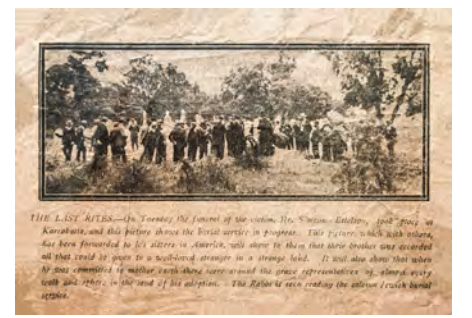 THE LAST RITES.—On Tuesday the funeral of the victim, Mr. Edelson, took place at
Karrakatta, and this picture shows the burial service in progress. This picture, which with others,
has been forwarded to his sisters in America, will show to them that their brother was accorded
all that could be given to a well-loved stranger in a strange land. It will also show that when
he was committed to mother earth there were around the grave representatives of almost every
walk and sphere in the land of his adoption. The Rabbi is seen reading the solemn Jewish burial
service.